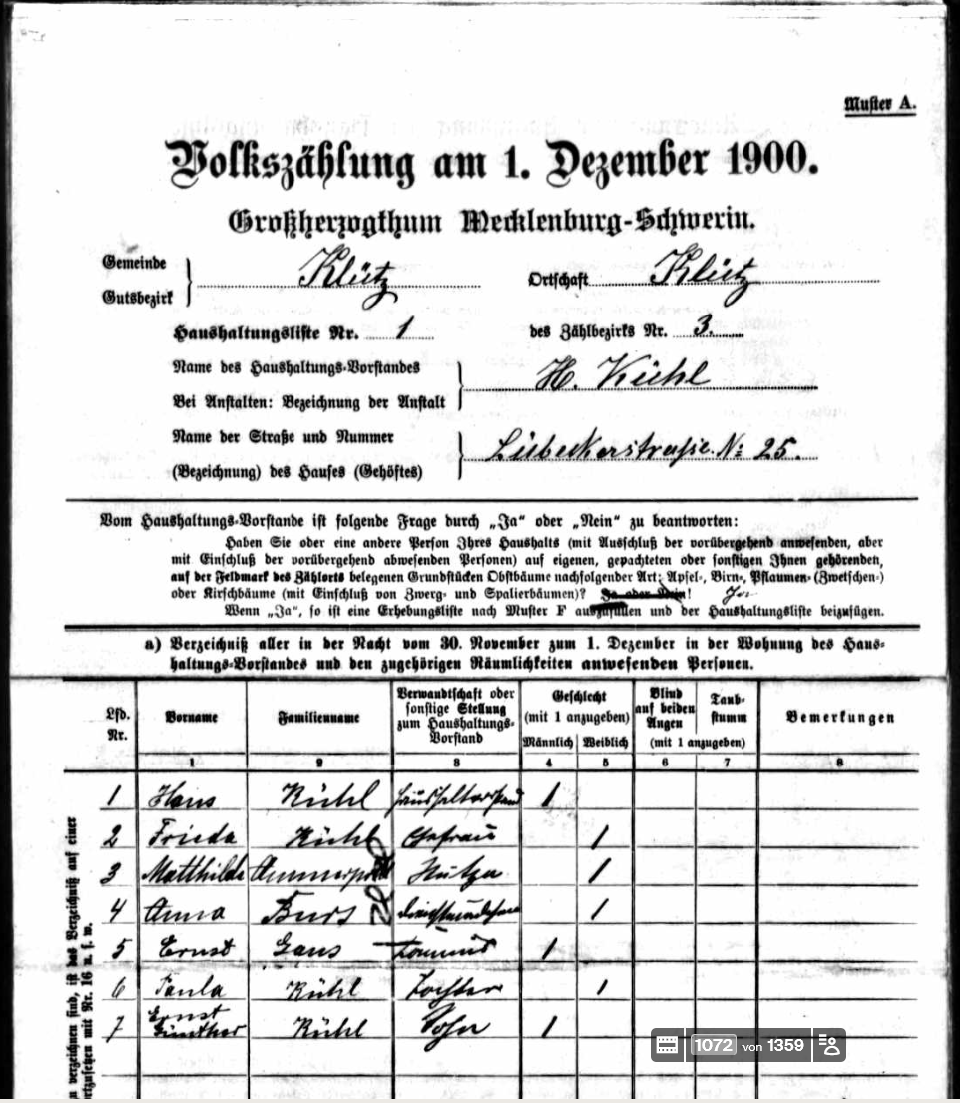 Muster A.
Volkszählung am 1. Dezember 1900.
Großherzogthum Mecklenburg-Schwerin.
Gemeinde
Gutsbezirk } Klütz Ortschaft Klütz
Haushaltungsliste Nr. 1 des Zählbezirks Nr. 3.
Name des Haushaltungs-Vorstandes
Bei Anstalten: Bezeichnung der Anstalt } H. Kühl
Name der Straße und Nummer
(Bezeichnung) des Hauses (Gehöftes) } Lübeckerstraße. No 25.
Vom Haushaltungs-Vorstande ist folgende Frage durch „Ja“ oder „Nein“ zu beantworten:
Haben Sie oder eine andere Person Ihres Haushalts (mit Ausschluß der vorübergehend anwesenden, aber
mit Einschluß der vorübergehend abwesenden Personen) auf eigenen, gepachteten oder sonstigen Ihnen gehörenden,
auf der Feldmark des Zählorts belegenen Grundstücken Obstbäume nachfolgender Art: Apfel-, Birn-, Pflaumen- (Zwetschen-)
oder Kirschbäume (mit Einschluß von Zwerg- und Spalierbäumen)? Ja oder Nein! Ja
Wenn „Ja“, so ist eine Erhebungsliste nach Muster F auszufüllen und der Haushaltungsliste beizufügen.
a) Verzeichniß aller in der Nacht vom 30. November zum 1. Dezember in der Wohnung des Haus-
haltungs-Vorstandes und den zugehörigen Räumlichkeiten anwesenden Personen.
Lfd. Nr. Vorname Familienname Verwandtschaft oder sonstige Stellung zum Haushaltungs-Vorstand Geschlecht (mit 1 anzugeben) Männlich Weiblich Blind auf beiden Augen Taub-stumm (mit 1 anzugeben) Bemerkungen
1 2 3 4 5 6 7 8
1 Hans Kühl 1
2 Frieda Kühl Ehefrau 1
3 Matthilde Stütze 1
4 Anna Burs Dienstmädchen 1
5 Ernst Gans 1
6 Paula Kühl Tochter 1
7 Ernst Günther Kühl Sohn 1
verzeichnen sind, ist das Verzeichniß auf einer
fortzusetzen mit Nr. 16 u. s. w.
1072 von 1359